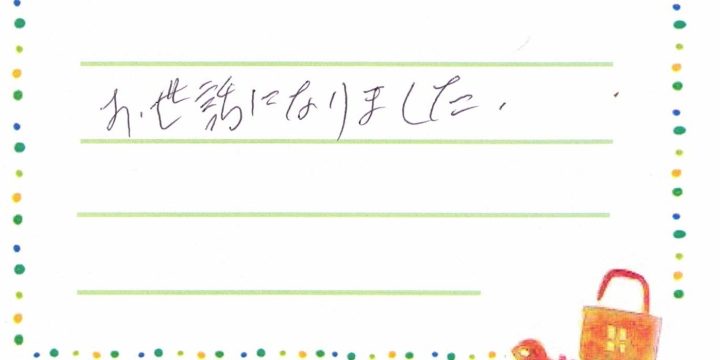 お世話になりました.